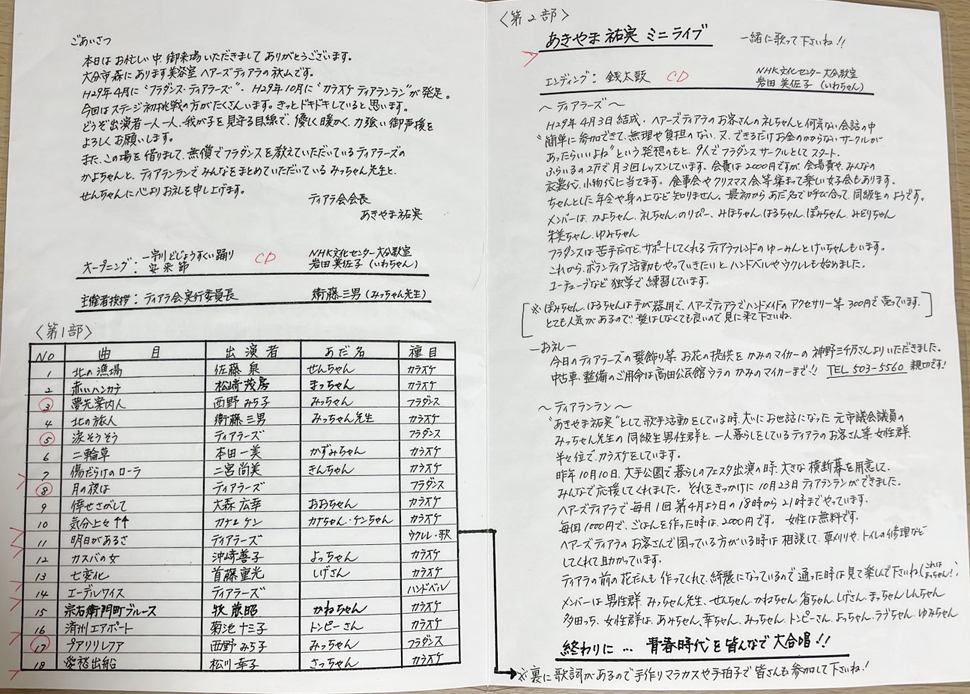 ごあいさつ
本日はお忙しい中、御来場いただきまして ありがとうございます。
大分市森にあります美容室 ヘアーズティアラの秋山です。
H29年4月に"フラダンス・ティアラーズ"、H29年10月に"カラオケ ティアランラン"が発足。
今回はステージ初挑戦の方がたくさんいます。きっとドキドキしていると思います。
どうぞ出演者一人一人、我が子を見守る目線で、優しく暖かく、力強い御声援を
よろしくお願いします。
また、この場を借りまして、無償でフラダンスを教えていただいているティアラーズの
かよちゃんと、ティアランランでみんなをまとめていただいている みっちゃん先生と、
せんちゃんに心よりお礼を申し上げます。
ティアラ会会長
あきやま祐実
オープニング: 一宇川どじょうすくい踊り 安来節 CD NHK文化センター大分教室 岩田美佐子(いわちゃん)
主催者挨拶: ティアラ会実行委員長 衛藤三男(みっちゃん先生)
〈第1部〉
NO 曲目 出演者 あだ名 種目
1 北の漁場 佐藤 泉 せんちゃん カラオケ
2 赤いハンカチ 松崎茂房 まっちゃん カラオケ
3 夢先案内人 西野みち子 みっちゃん フラダンス
4 北の旅人 衛藤三男 みっちゃん先生 カラオケ
5 涙そうそう ティアラーズ フラダンス
6 二輪草 本田一美 かずみちゃん カラオケ
7 傷だらけのローラ 二宮尚美 きんちゃん カラオケ
8 月の夜は ティアラーズ フラダンス
9 倖せさがして 大森広幸 おおちゃん カラオケ
10 気分上々↑↑ カナ&ケン カナちゃん・ケンちゃん カラオケ
11 明日があるさ ティアラーズ ウクレレ・歌
12 カスバの女 沖崎善子 よっちゃん カラオケ
13 七変化 首藤重光 しげさん カラオケ
14 エーデルワイス ティアラーズ ハンドベル
15 宗右衛門町ブルース 牧 兼昭 かねちゃん カラオケ
16 済州エアポート 菊池十三子 トンピーさん カラオケ
17 プアリリレフア 西野みち子 みっちゃん フラダンス
18 愛が出船 松川幸子 さっちゃん カラオケ
〈第2部〉
あきやま祐実 ミニライブ 一緒に歌って下さいね!!
エンディング: 銭太鼓 CD NHK文化センター大分教室 岩田美佐子(いわちゃん)
～ティアラーズ～
H29年4月3日結成・ヘアーズティアラのお客さんの礼ちゃんと何気ない会話の中
"簡単に参加できて、無理や負担のない、又、できるだけお金のかからないサークルが
あったらいいよね"という発想のもと、9人でフラダンスサークルとしてスタート。
ふらいるの2Fで月3回レッスンしています。会費は2000円ですが、会場費や、みんなの
衣装代、小物代に当てます。食事会やクリスマス会等集まって楽しい女子会もあります。
ちゃんとした年令や身の上など知りません。最初からあだ名で呼び合って、同級生のようです。
メンバーは、かよちゃん、礼ちゃん、のりぴー、みほちゃん、はるちゃん、ぽみちゃん、みどりちゃん
朱美ちゃん、ゆみちゃん
フラダンスは苦手だけど、サポートしてくれるティアラフレンドのゆーみんとけいちゃんもいます。
これから、ボランティア活動もやっていきたいと ハンドベルやウクレレも始めました。
ユーチューブなど独学で練習しています。
※ぽみちゃん、はるちゃんは手が器用で、ヘアーズティアラでハンドメイドのアクセサリー等300円で売っています。
とても人気があるので髪はしなくても良いので見に来て下さいね。
―お礼―
今日のティアラーズの髪飾り等 お花の提供を かみのマイカーの神野三千万さんよりいただきました。
中古車、整備のご用命は高田公民館ウラの かみのマイカーまで!! TEL 503-5560 親切です!
～ティアランラン～
"あきやま祐実"として歌手活動をしている時、大いにお世話になった元市議会議員の
みっちゃん先生の同級生男性群と、一人暮らしをしているティアラのお客さん等女性群、
半々位で、カラオケをしています。
昨年10月10日、大手公園で暮らしのフェスタ出演の時、大きな横断幕を用意して、
みんなで応援してくれました。それをきっかけに10月23日ティアランランができました。
ヘアーズティアラで毎月1回第4月よう日の18時から21時までやっています。
毎回1000円で、ごはんを作った時は、2000円です。女性は無料です。
ヘアーズティアラのお客さんで困っている方がいる時は相談して、草刈りや、トイレの修理など
してくれて助かっています。
ティアラの前の花だんも作ってくれて、綺麗になっているので通った時は見て楽しんで下さいね(これはよっちゃん!)
メンバーは男性群、みっちゃん先生、せんちゃん、かねちゃん、省ちゃん、しげさん、まっちゃん、しんちゃん
多田っち、女性群は、あみちゃん、幸ちゃん、みっちゃん、トンピーさん、よっちゃん、ラブちゃん、ゆみちゃん
終わりに … 青春時代を皆んなで大合唱!!
※裏に歌詞があるので手作りマラカスや手拍子で皆さんも参加して下さいね!